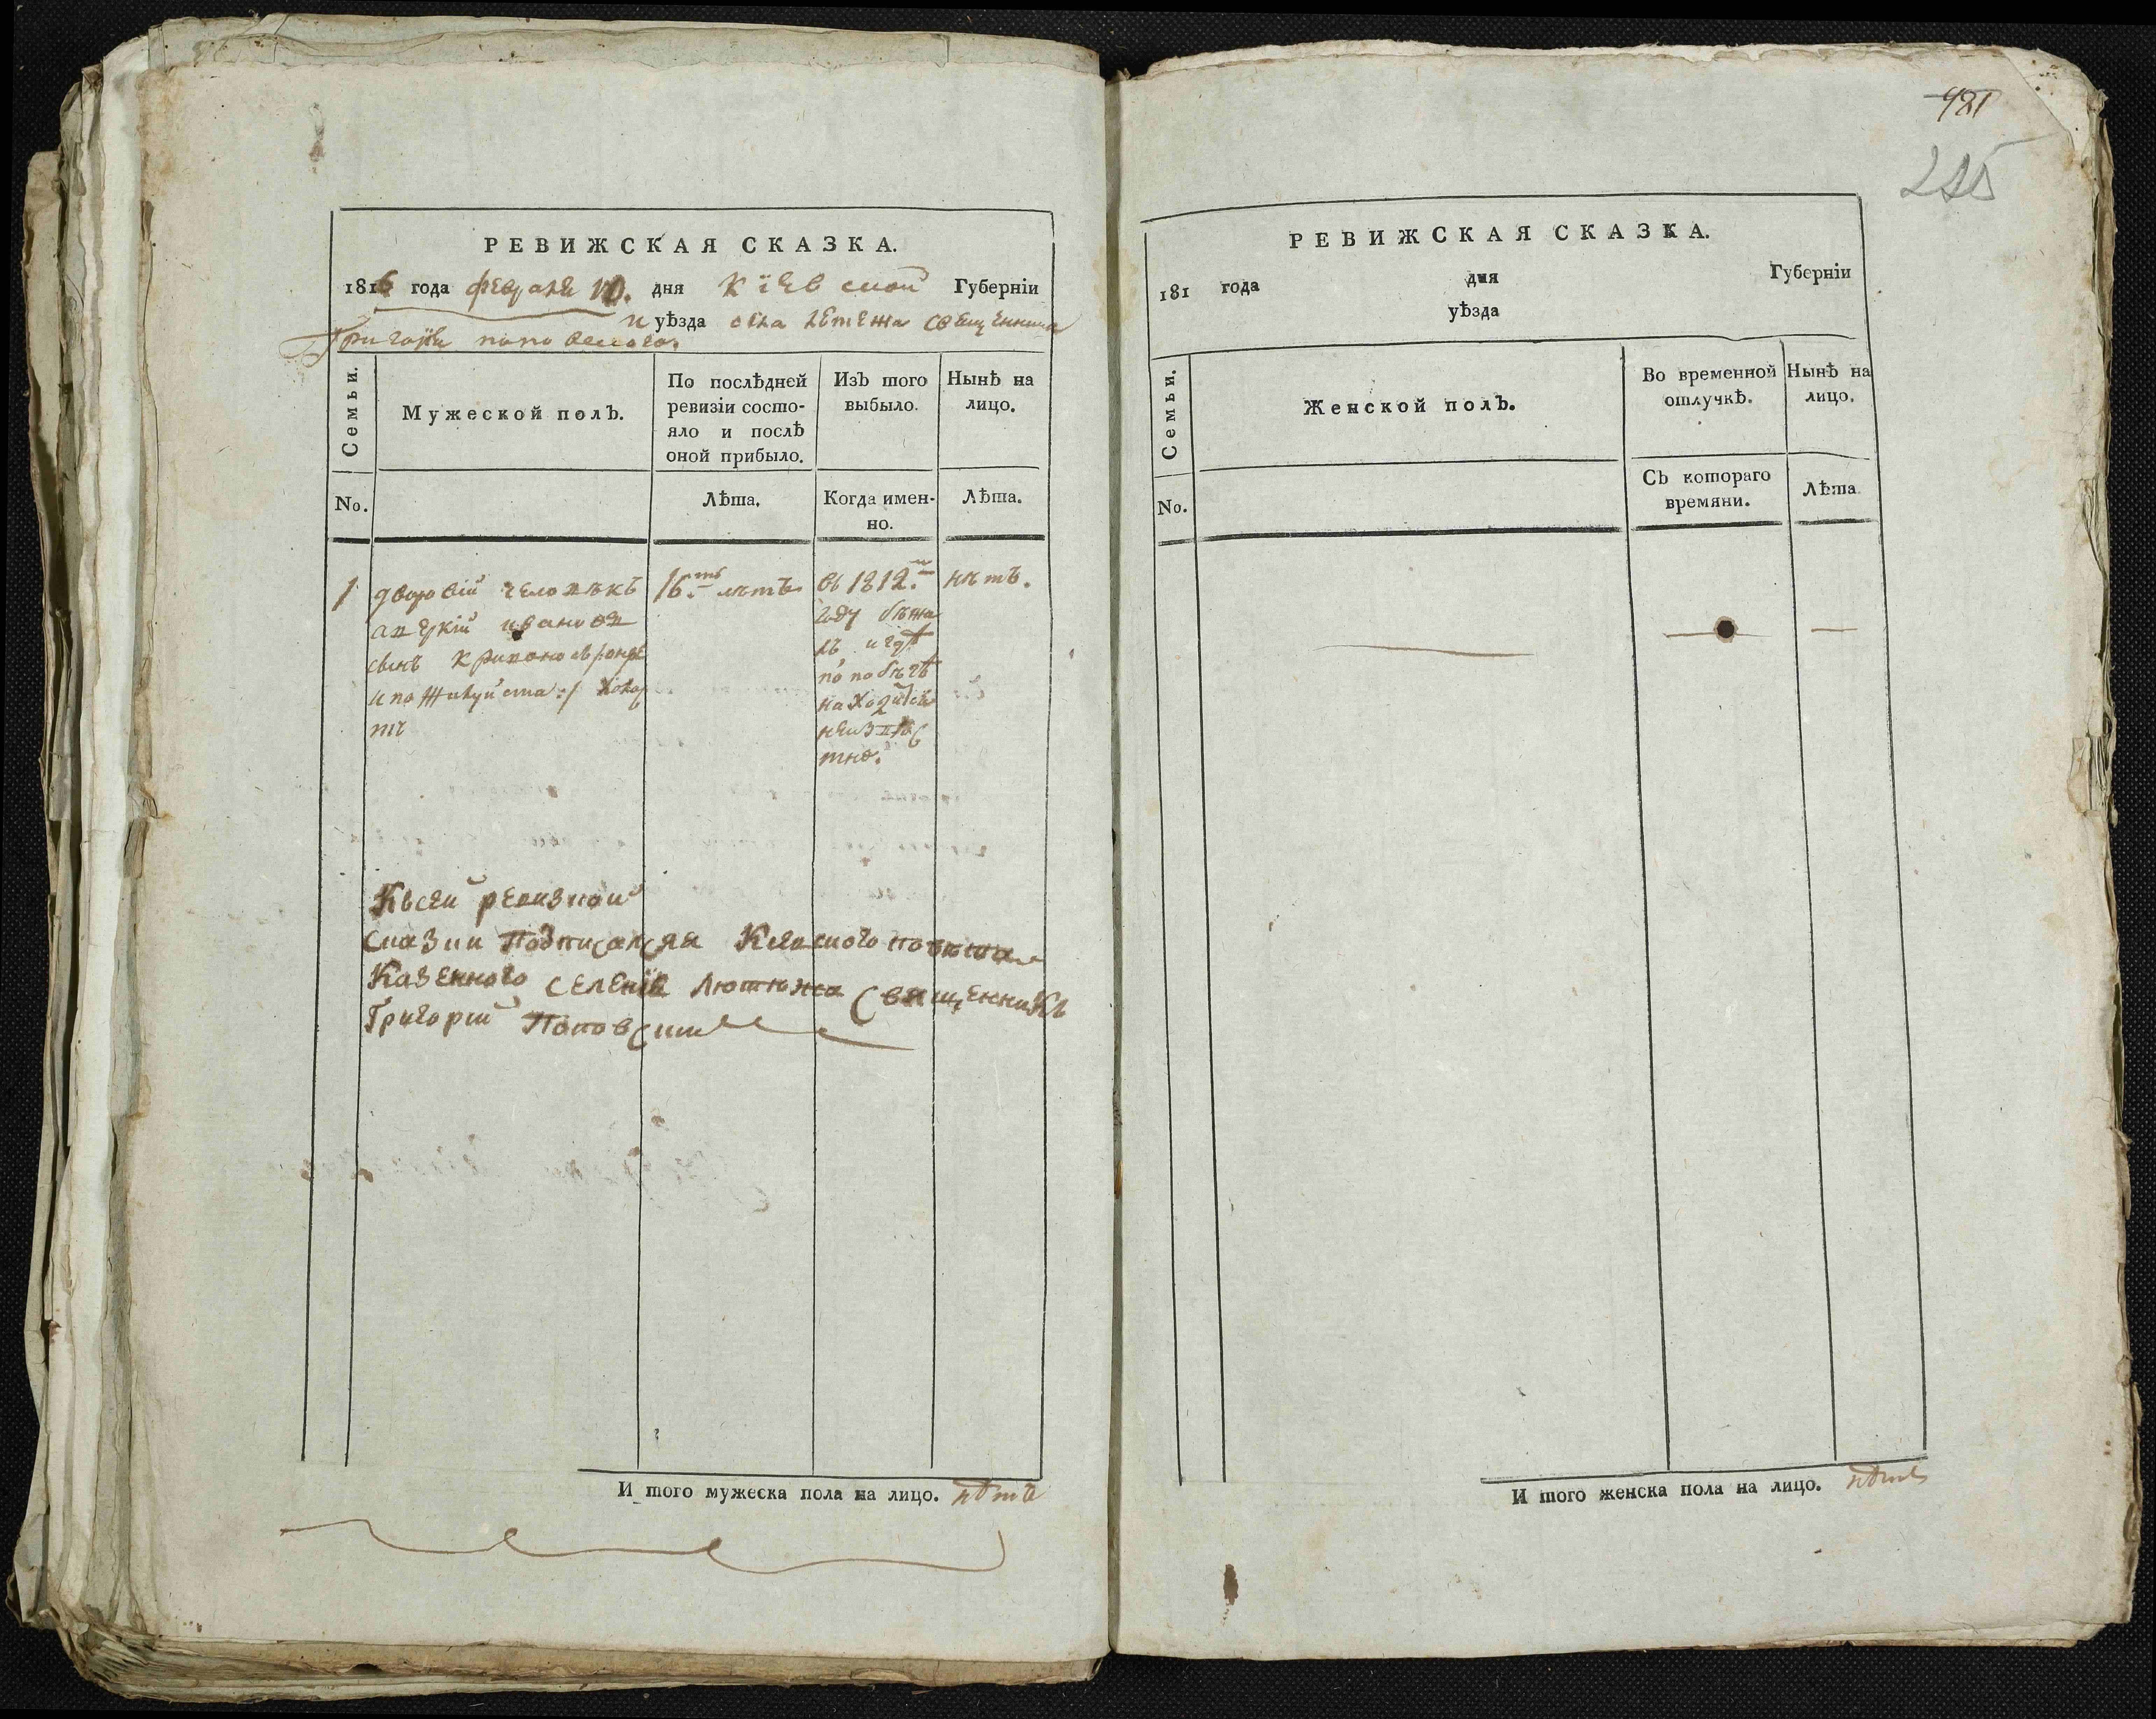 РЕВИЖСКАЯ СКАЗКА.
1816 года февраля 10. дня Кіевской Губерніи
и уѣзда села Лютежа священника
Григорія поповского.
Семьи.
Мужеской полъ.
По послѣдней ревизіи состо-
яло и послѣ
оной прибыло.
Изъ того
выбыло.
Нынѣ на
лицо.
No.
Лѣта.
Когда имен-
но.
Лѣта.
1 дворовій человѣкъ 16.ть лѣтъ въ 1812.м нѣтъ.
году бѣжа
лъ и гдѣ
по побѣгѣ
находится
неизвѣс
тно.
ивановъ
сынъ
Къ сей ревизкой
сказки Подписался Киевского повѣта
Казенного селенія Лютюжа Священникъ
Григорий Поповский
И того мужеска пола на лицо. нѣтъ
481
РЕВИЖСКАЯ СКАЗКА.
181 года дня Губерніи
уѣзда
Семьи.
Женской полъ.
Во временной
отлучкѣ.
Нынѣ на
лицо.
No.
Съ котораго
времяни.
Лѣта
И того женска пола на лицо. нѣтъ